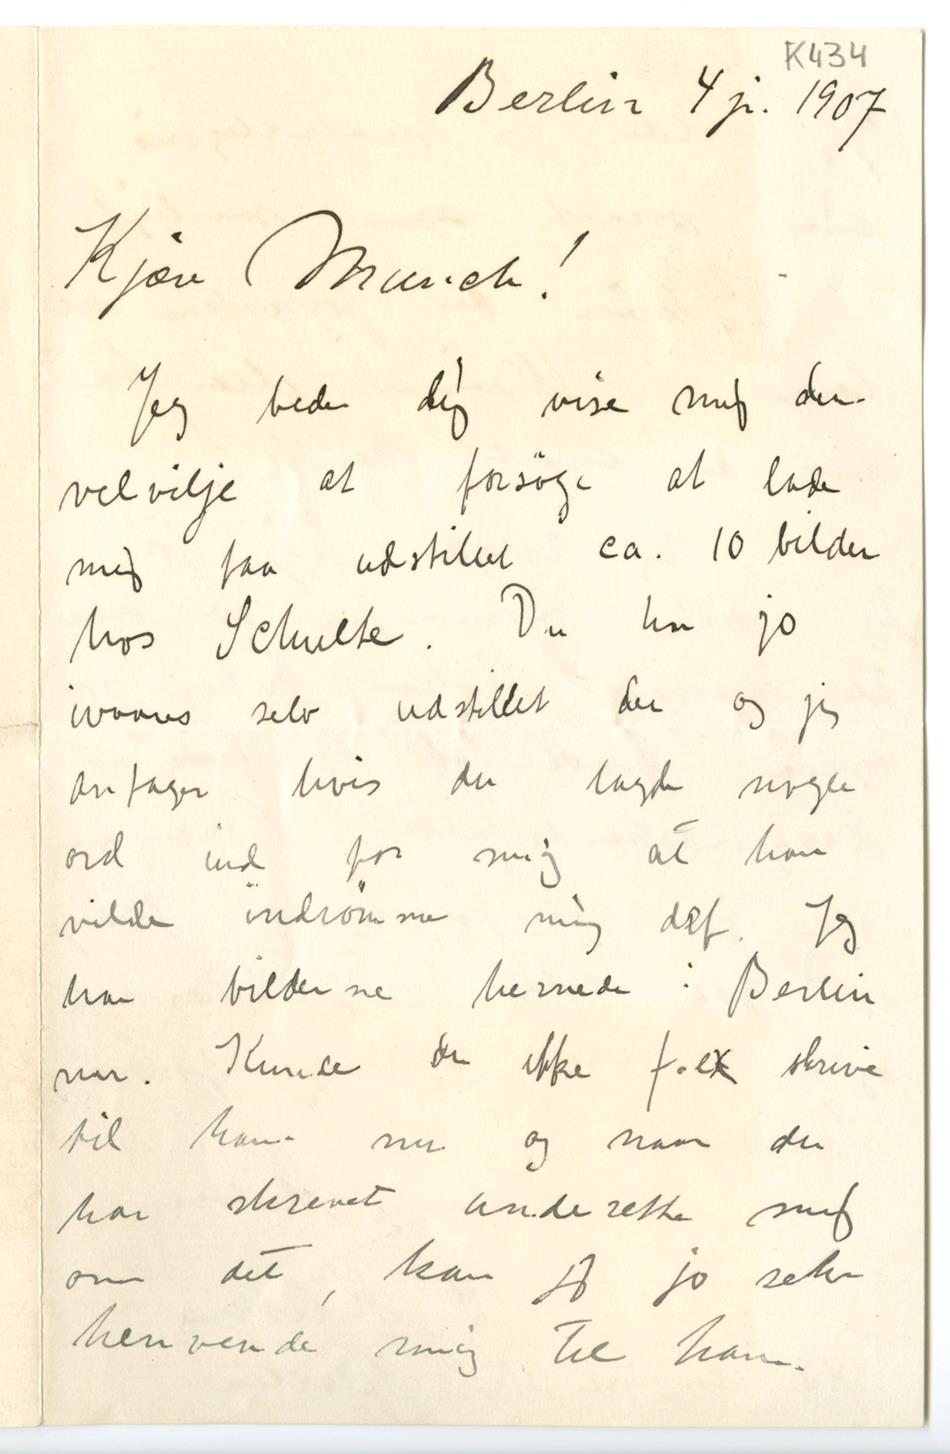 K434
Berlin 4 ji. 1907
Kjære Munch!
Jeg beder dig vise mig den
velvilje at forsøge at lade
mig faa udstillet ca. 10 bilder
hos Schulte. Du har jo
ivaares selv udstillet der og jeg
antager hvis du lagde nogle
ord ind for mig at han
vilde indrömme mig det. Jeg
har bilderne hernede i Berlin
nu. Kunde du ikke f.ex skrive
til ham nu og naar du
har skrevet underrette mig
om det, kan jeg jo selv
henvende mig til ham.